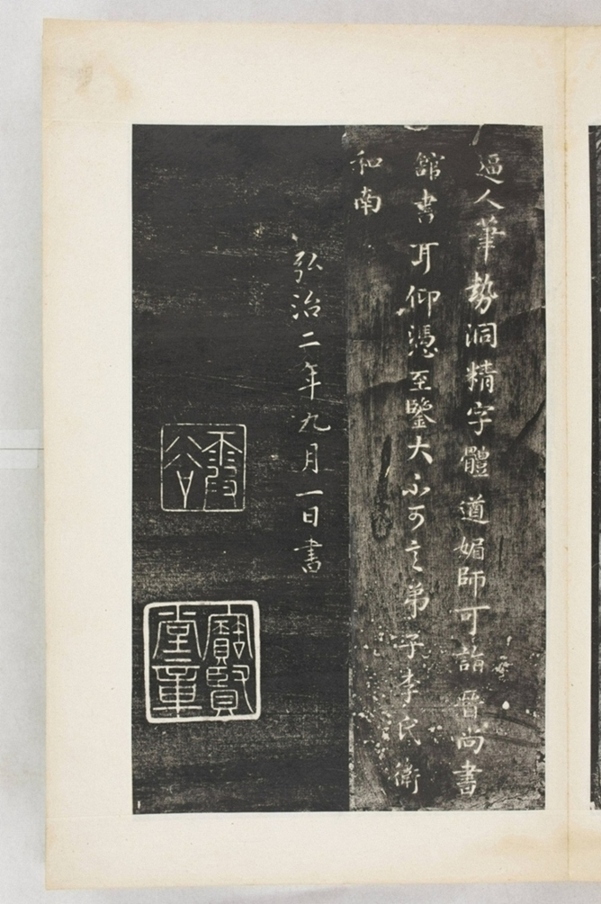 逼人筆勢洞精字體遒媚師可詣晉尚書
舘書耳仰憑至鑒大不可言弟子李氏衛
和南
弘治二年九月一日書
寶賢堂章